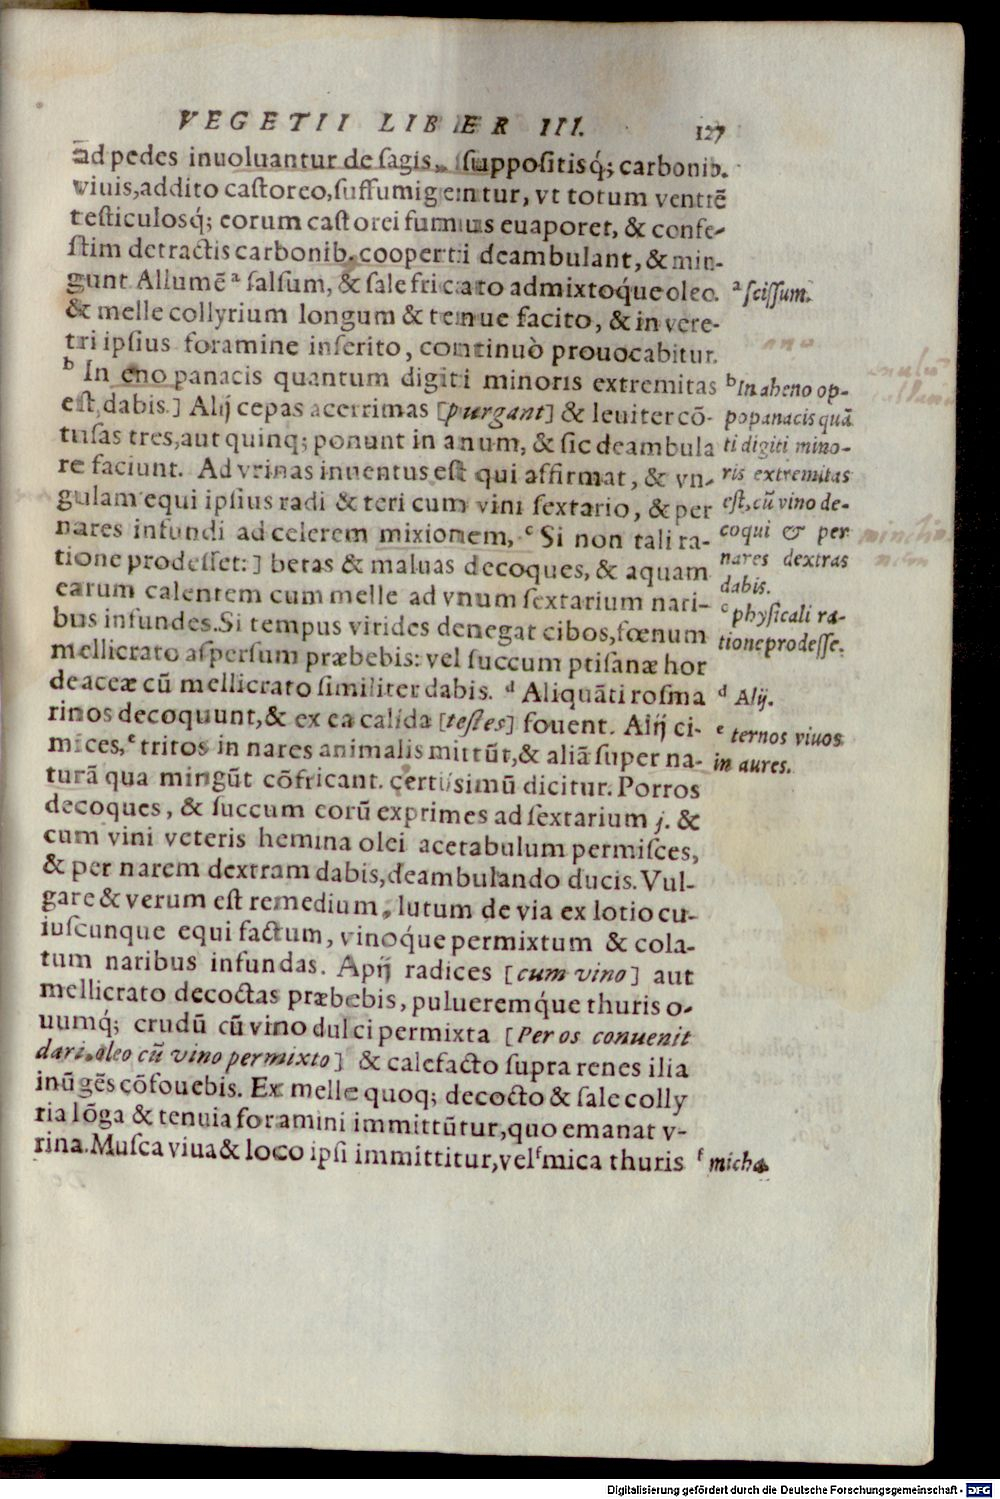 VEGETII LIBER III. 127
ad pedes inuoluantur de sagis, suppositisq́; carbonib.
viuis, addito castoreo, suffumigentur, vt totum ventrē
testiculosq́; eorum castorei fumus euaporet, & confe-
stim detractis carbonib. cooperti deambulant, & min-
gunt Allumē ᵃ salsum, & sale fricato admixtoq́ue oleo.
& melle collyrium longum & tenue facito, & in vere-
tri ipsius foramine inserito, continuò prouocabitur.
ᵇ In eno panacis quantum digiti minoris extremitas
est, dabis.] Alij cepas acerrimas [purgant] & leuiter cō-
tusas tres, aut quinq; ponunt in anum, & sic deambula
re faciunt. Ad vrinas inuentus est qui affirmat, & vn-
gulam equi ipsius radi & teri cum vini sextario, & per
nares infundi ad celerem mixionem, ᶜ Si non tali ra-
tione prodesset:] betas & maluas decoques, & aquam
earum calentem cum melle ad vnum sextarium nari-
bus infundes. Si tempus virides denegat cibos, fœnum
mellicrato aspersum præbebis: vel succum ptisanæ hor
deaceæ cū mellicrato similiter dabis. ᵈ Aliquāti rosma
rinos decoquunt, & ex ea calida [testes] fouent. Alij ci-
mices, ᵉ tritos in nares animalis mittūt, & aliā super na-
turā qua mingūt cōfricant. certissimū dicitur. Porros
decoques, & succum corū exprimes ad sextarium j. &
cum vini veteris hemina olei acetabulum permisces,
& per narem dextram dabis, deambulando ducis. Vul-
gare & verum est remedium, lutum de via ex lotio cu-
iuscunque equi factum, vinoq́ue permixtum & cola-
tum naribus infundas. Apij radices [cum vino] aut
mellicrato decoctas præbebis, pulueremq́ue thuris o-
uumq́; crudū cū vino dulci permixta [Per os conuenit
dari, oleo cū vino permixto] & calefacto supra renes ilia
inūgēs cōfouebis. Ex melle quoq; decocto & sale colly
ria lōga & tenuia foramini immittūtur, quo emanat v-
rina. Musca viua & loco ipsi immittitur, vel ᶠ mica thuris
ᵃ scissum.
ᵇ In aheno op-
popanacis quā
ti digiti mino-
ris extremitas
est, cū vino de-
coqui & per
nares dextras
dabis.
ᶜ physicali ra-
tione prodesse.
ᵈ Alij.
ᵉ ternos viuos
in aures.
ᶠ micha
Digitalisierung gefördert durch die Deutsche Forschungsgemeinschaft - DFG